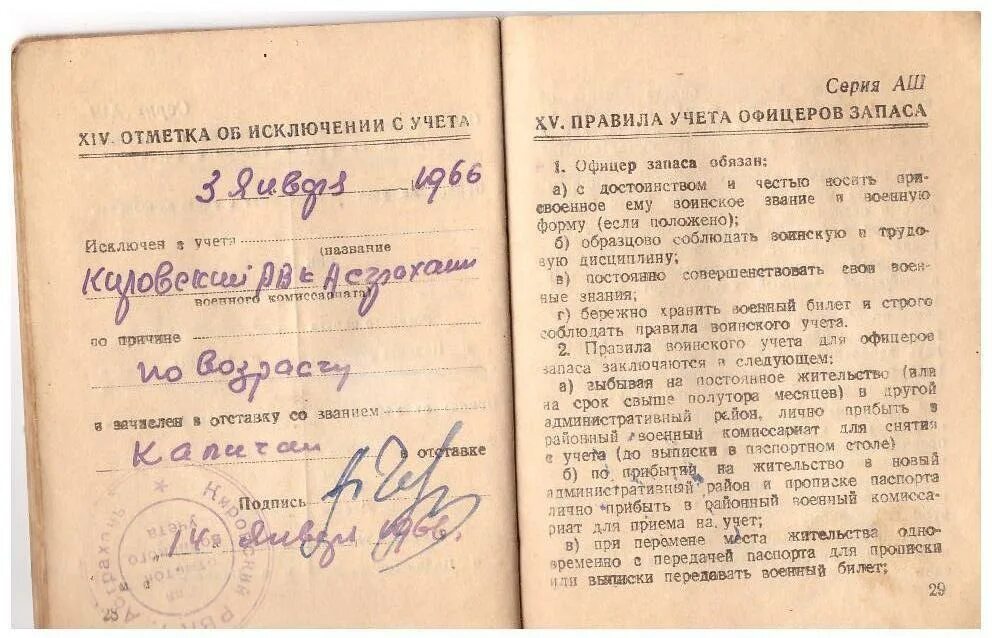 XIV. ОТМЕТКА ОБ ИСКЛЮЧЕНИИ С УЧЕТА
3 Января 1966
Исключен с учета
(название
Кировский РВК Астрахани
военного комиссариата)
по причине
по возрасту
и зачислен в отставку со званием
Капитан в отставке
Подпись
"14" Января 1966г.
28
Серия АШ
XV. ПРАВИЛА УЧЕТА ОФИЦЕРОВ ЗАПАСА
1. Офицер запаса обязан:
а) с достоинством и честью носить при-
своенное ему воинское звание и военную
форму (если положено);
б) образцово соблюдать воинскую и трудо-
вую дисциплину;
в) постоянно совершенствовать свои воен-
ные знания;
г) бережно хранить военный билет и строго
соблюдать правила воинского учета.
2. Правила воинского учета для офицеров
запаса заключаются в следующем:
а) выбывая на постоянное жительство (или
на срок свыше полутора месяцев) в другой
административный район, лично прибыть в
районный военный комиссариат для снятия
с учета (до выписки в паспортном столе)
б) по прибытии на жительство в новый
административный район и прописке паспорта
лично прибыть в районный военный комисса-
риат для приема на учет;
в) при перемене места жительства одно-
временно с передачей паспорта для прописки
или выписки передавать военный билет;
29